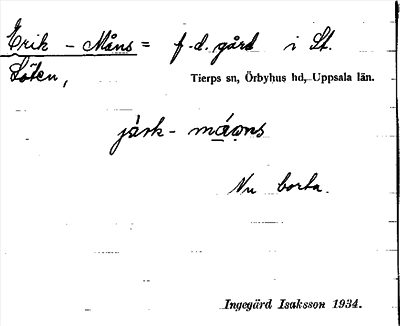 Erik - Måns = f.d. gård i St.
Löten,
Tierps sn, Örbyhus hd, Uppsala län.
jä̀rk- máo̤ns
Nu borta.
Ingegärd Isaksson 1934.